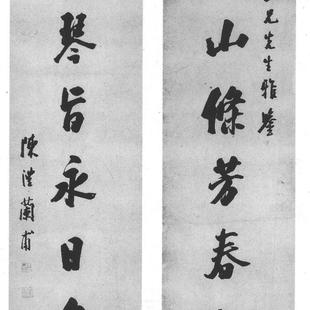 兄先生雅鑒
山條芳春
琴旨永日
陳澧蘭甫